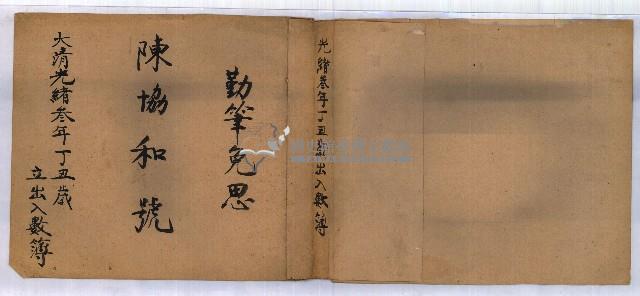 光緒叁年丁丑歲出入數簿
勤筆免思
陳協和號
大清光緒叁年丁丑歲
立出入數簿